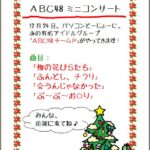 ABC48 ミニコンサート
12月24日、パソコンとーじょーに、
あの有名アイドルグループ
"ABC48 チームP"がやってきます！
曲目：
「俺の花びらたち」
「ふんどし、チラリ」
「会うんじゃなかった」
「ぶーぶーおり」
みんな、
応援に来てね♪